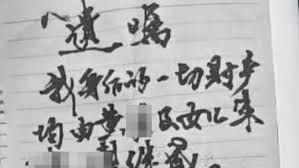 遗嘱
我身后的一切财产
均由黄 及女儿朱
继承